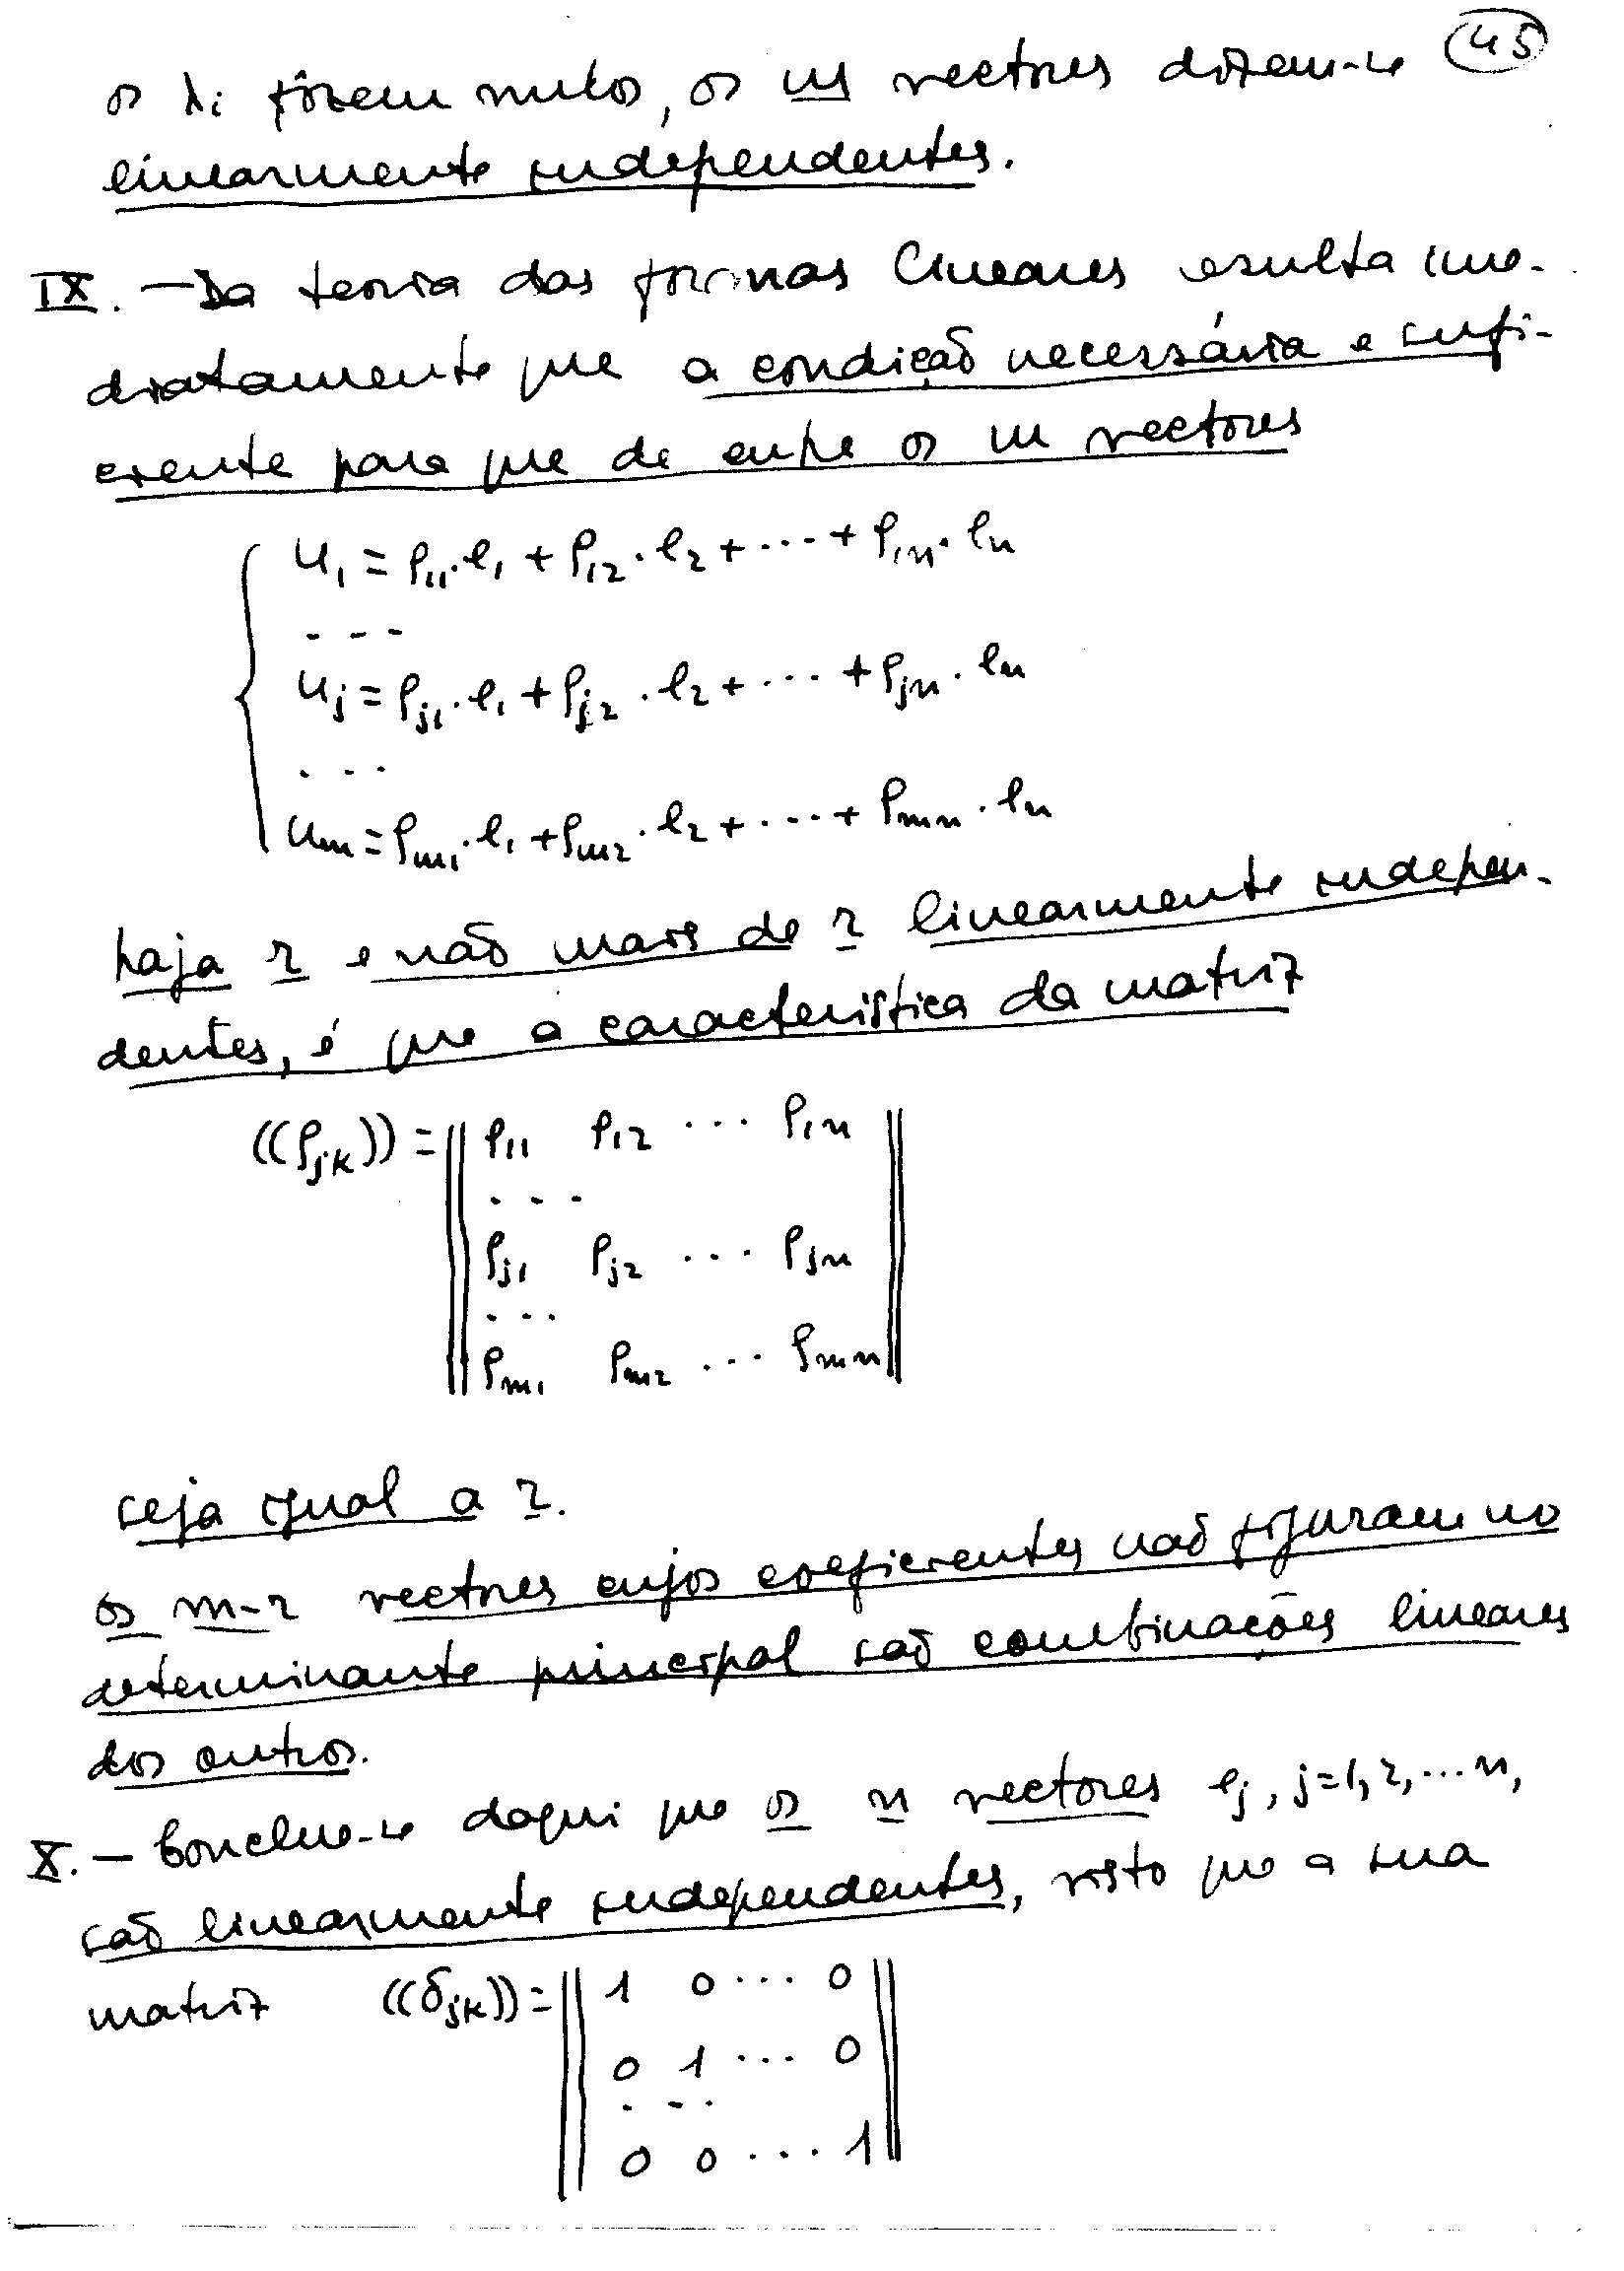 45
os λi fôrem nulos, os m vectores dizem-se
linearmente independentes.
IX. — Da teoria das formas lineares resulta ime-
diatamente que a condição necessária e sufi-
ciente para que de entre os m vectores
u₁ = ρ₁₁·e₁ + ρ₁₂·e₂ + ··· + ρ₁ₙ·eₙ
- - -
uⱼ = ρⱼ₁·e₁ + ρⱼ₂·e₂ + ··· + ρⱼₙ·eₙ
...
uₘ = ρₘ₁·e₁ + ρₘ₂·e₂ + ··· + ρₘₙ·eₙ
haja r e não mais de r linearmente indepen-
dentes, é que a característica da matriz
((ρjk)) = || ρ₁₁ ρ₁₂ ··· ρ₁ₙ ||
...
ρⱼ₁ ρⱼ₂ ··· ρⱼₙ
...
ρₘ₁ ρₘ₂ ··· ρₘₙ
seja igual a r.
os m-r vectores cujos coeficientes não figuram no
determinante principal são combinações lineares
dos outros.
X. — Conclue-se daqui que os n vectores eⱼ, j=1,2,...n,
são linearmente independentes, visto que a sua
matriz ((δjk)) = || 1 0 ··· 0 ||
0 1 ··· 0
...
0 0 ··· 1